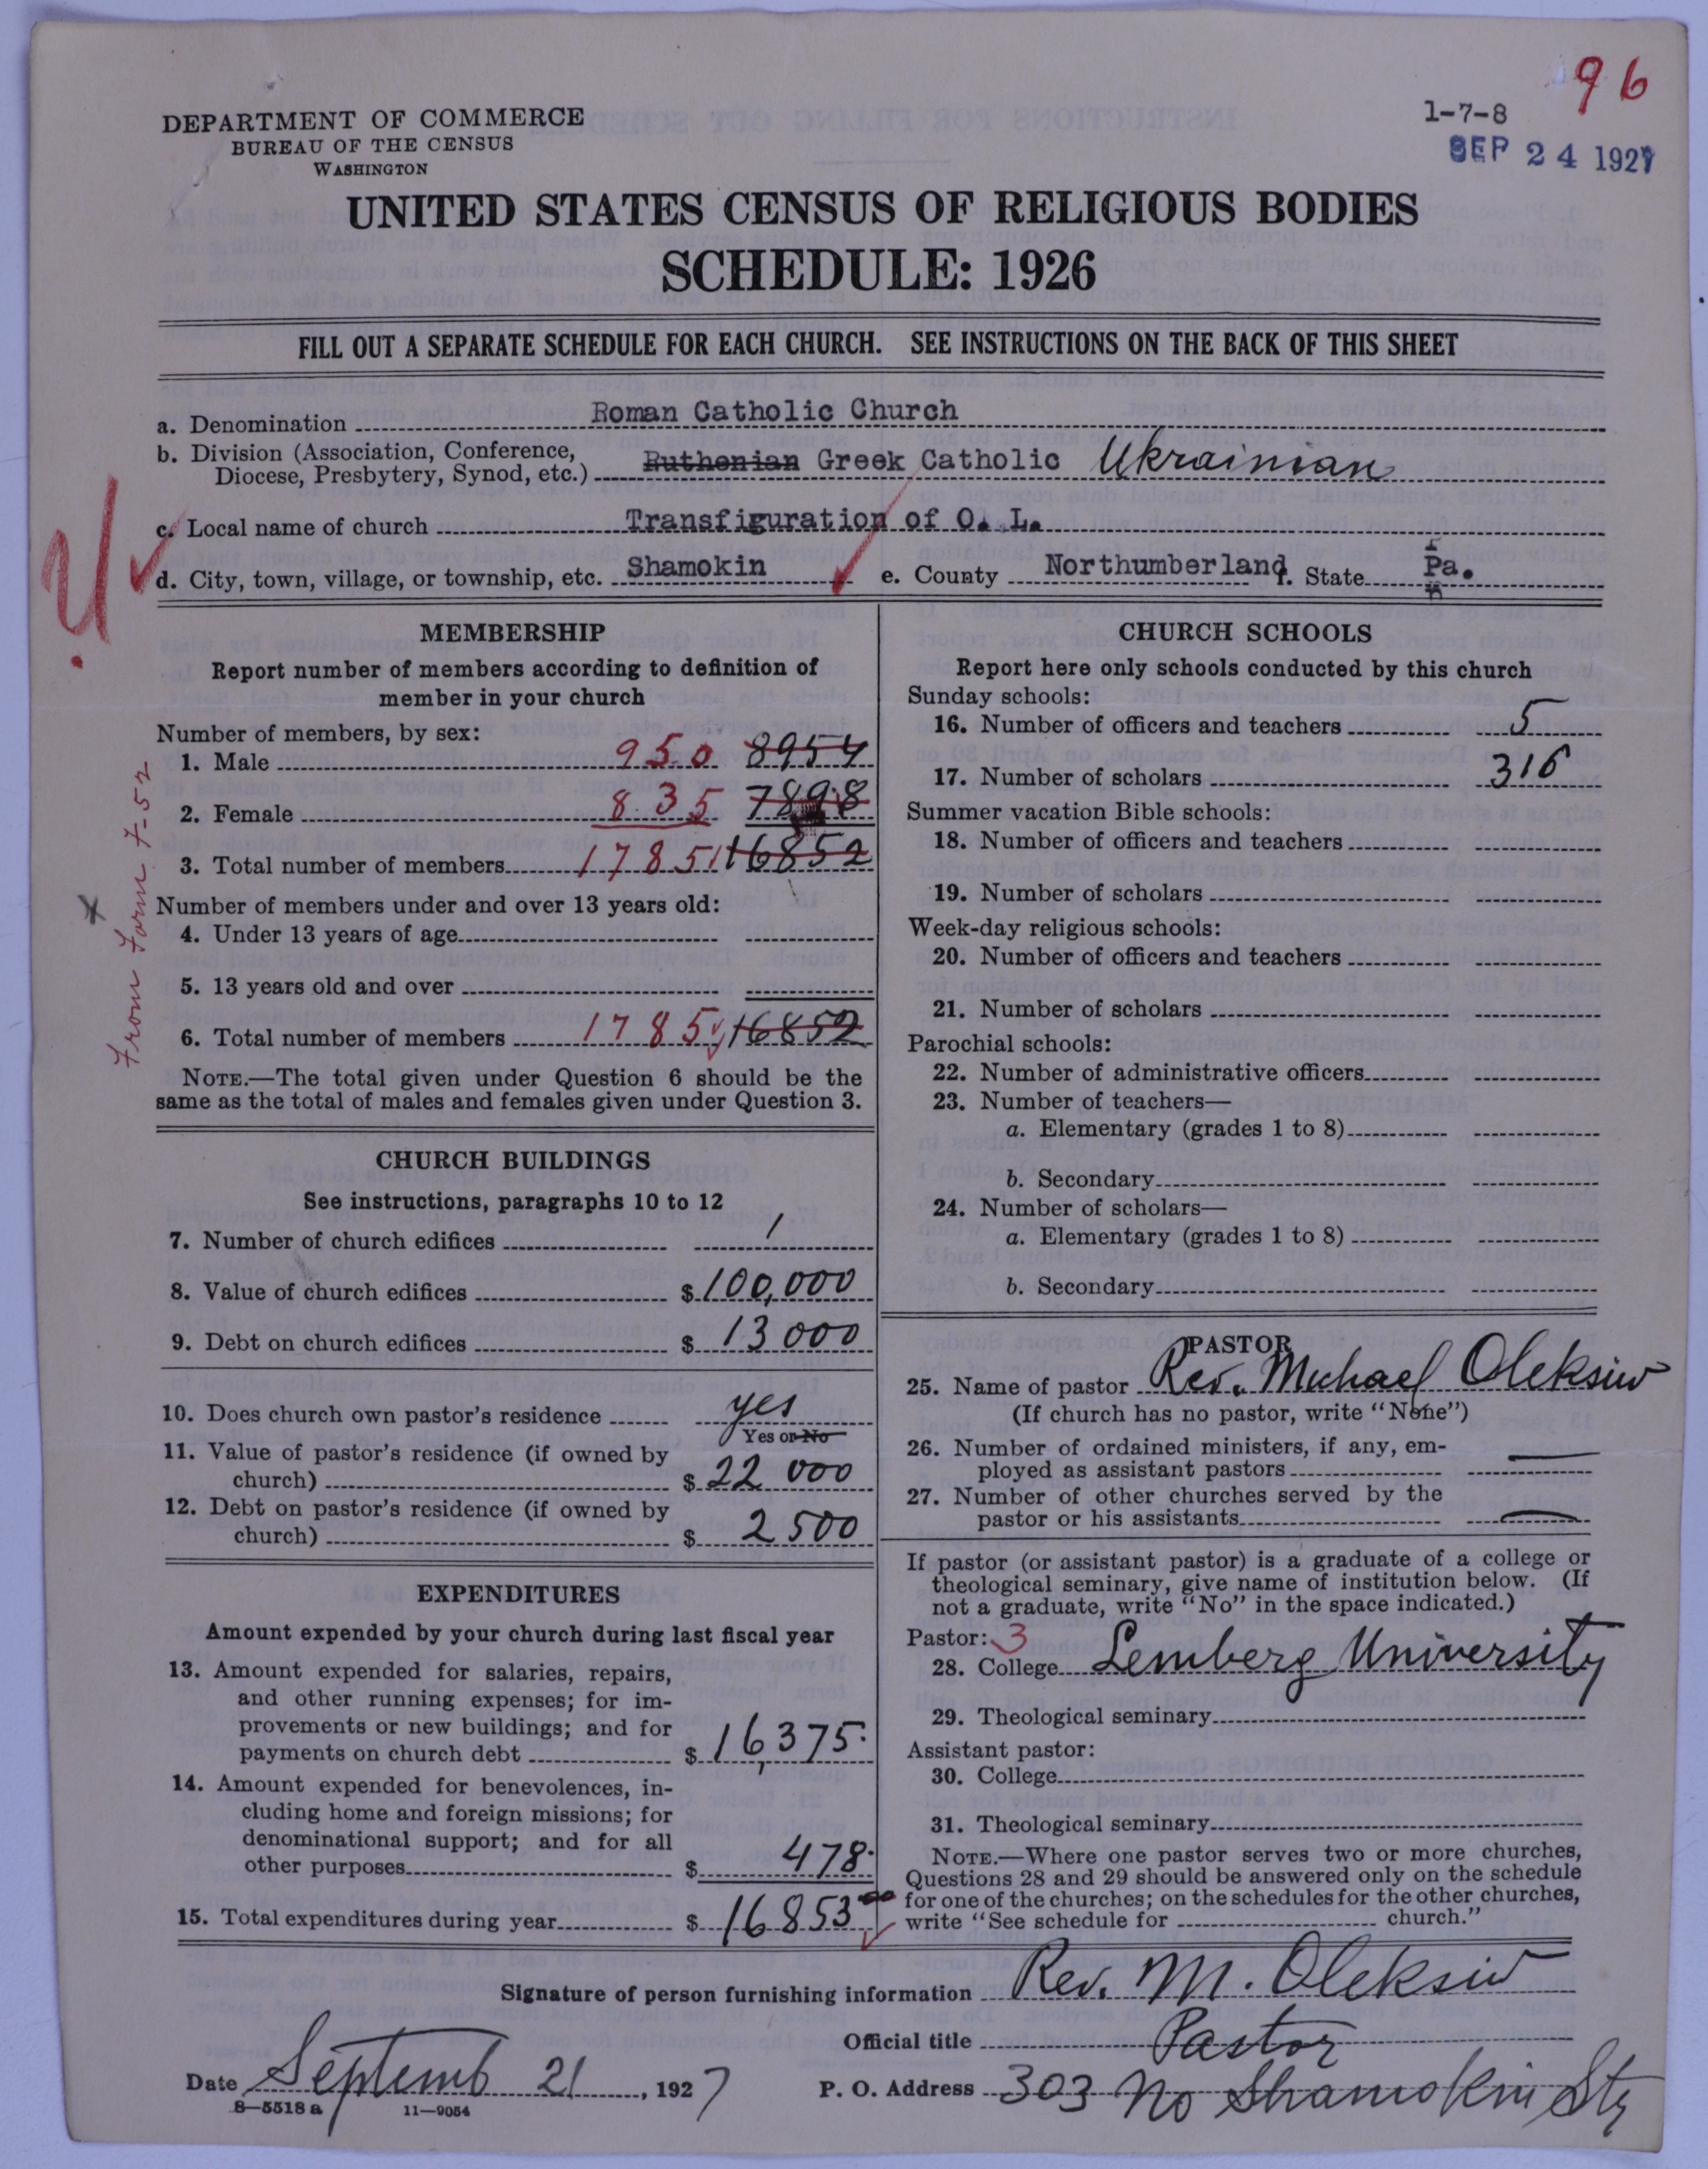 96
1-7-8
SEP 24 1927
DEPARTMENT OF COMMERCE
BUREAU OF THE CENSUS
WASHINGTON
UNITED STATES CENSUS OF RELIGIOUS BODIES
SCHEDULE: 1926
FILL OUT A SEPARATE SCHEDULE FOR EACH CHURCH. SEE INSTRUCTIONS ON THE BACK OF THIS SHEET
a. Denomination Roman Catholic Church
b. Division (Association, Conference,
Diocese, Presbytery, Synod, etc.) Ruthenian Greek Catholic Ukrainian
c. Local name of church Transfiguration of O. L.
d. City, town, village, or township, etc. Shamokin e. County Northumberland f. State Pa.
MEMBERSHIP
Report number of members according to definition of
member in your church
Number of members, by sex:
1. Male 950 8954
2. Female 835 7898
3. Total number of members 1785 16852
Number of members under and over 13 years old:
4. Under 13 years of age
5. 13 years old and over
6. Total number of members 1785 16852
From Form 7-52
NOTE.—The total given under Question 6 should be the
same as the total of males and females given under Question 3.
CHURCH BUILDINGS
See instructions, paragraphs 10 to 12
7. Number of church edifices 1
8. Value of church edifices $ 100,000
9. Debt on church edifices $ 13 000
10. Does church own pastor's residence yes
Yes or No
11. Value of pastor's residence (if owned by
church) $ 22 000
12. Debt on pastor's residence (if owned by
church) $ 2500
EXPENDITURES
Amount expended by your church during last fiscal year
13. Amount expended for salaries, repairs,
and other running expenses; for im-
provements or new buildings; and for
payments on church debt $ 16,375.
14. Amount expended for benevolences, in-
cluding home and foreign missions; for
denominational support; and for all
other purposes $ 478.
15. Total expenditures during year $ 16853
CHURCH SCHOOLS
Report here only schools conducted by this church
Sunday schools:
16. Number of officers and teachers 5
17. Number of scholars 316
Summer vacation Bible schools:
18. Number of officers and teachers
19. Number of scholars
Week-day religious schools:
20. Number of officers and teachers
21. Number of scholars
Parochial schools:
22. Number of administrative officers
23. Number of teachers—
a. Elementary (grades 1 to 8)
b. Secondary
24. Number of scholars—
a. Elementary (grades 1 to 8)
b. Secondary
PASTOR
25. Name of pastor Rev. Michael Oleksiw
(If church has no pastor, write "None")
26. Number of ordained ministers, if any, em-
ployed as assistant pastors —
27. Number of other churches served by the
pastor or his assistants —
If pastor (or assistant pastor) is a graduate of a college or
theological seminary, give name of institution below. (If
not a graduate, write "No" in the space indicated.)
Pastor: 3
28. College Lemberg University
29. Theological seminary
Assistant pastor:
30. College
31. Theological seminary
NOTE.—Where one pastor serves two or more churches,
Questions 28 and 29 should be answered only on the schedule
for one of the churches; on the schedules for the other churches,
write "See schedule for church."
Signature of person furnishing information Rev. M. Oleksiw
Official title Pastor
Date Septemb 21, 1927 P. O. Address 303 No Shamokin Str
8—5518 a 11—9054